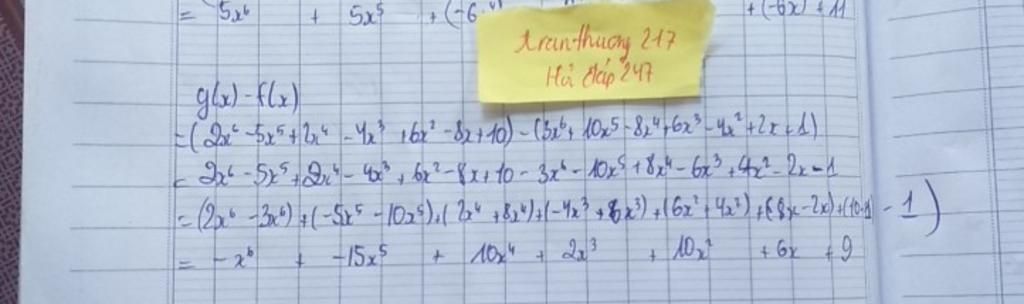 = 5x⁶ + 5x⁵ + (-6 + (-6x) + 11
tranthuong 217
Hỏi đáp 247
g(x) - f(x)
= (2x⁶ - 5x⁵ + 2x⁴ - 4x³ + 6x² - 8x + 10) - (3x⁶ + 10x⁵ - 8x⁴ + 6x³ - 4x² + 2x + 1)
= 2x⁶ - 5x⁵ + 2x⁴ - 4x³ + 6x² - 8x + 10 - 3x⁶ - 10x⁵ + 8x⁴ - 6x³ + 4x² - 2x - 1
= (2x⁶ - 3x⁶) + (-5x⁵ - 10x⁵) + (2x⁴ + 8x⁴) + (-4x³ + 6x³) + (6x² + 4x²) + (-8x - 2x) + (10-1) - 1)
= -x⁶ + -15x⁵ + 10x⁴ + 2x³ + 10x² + 6x + 9